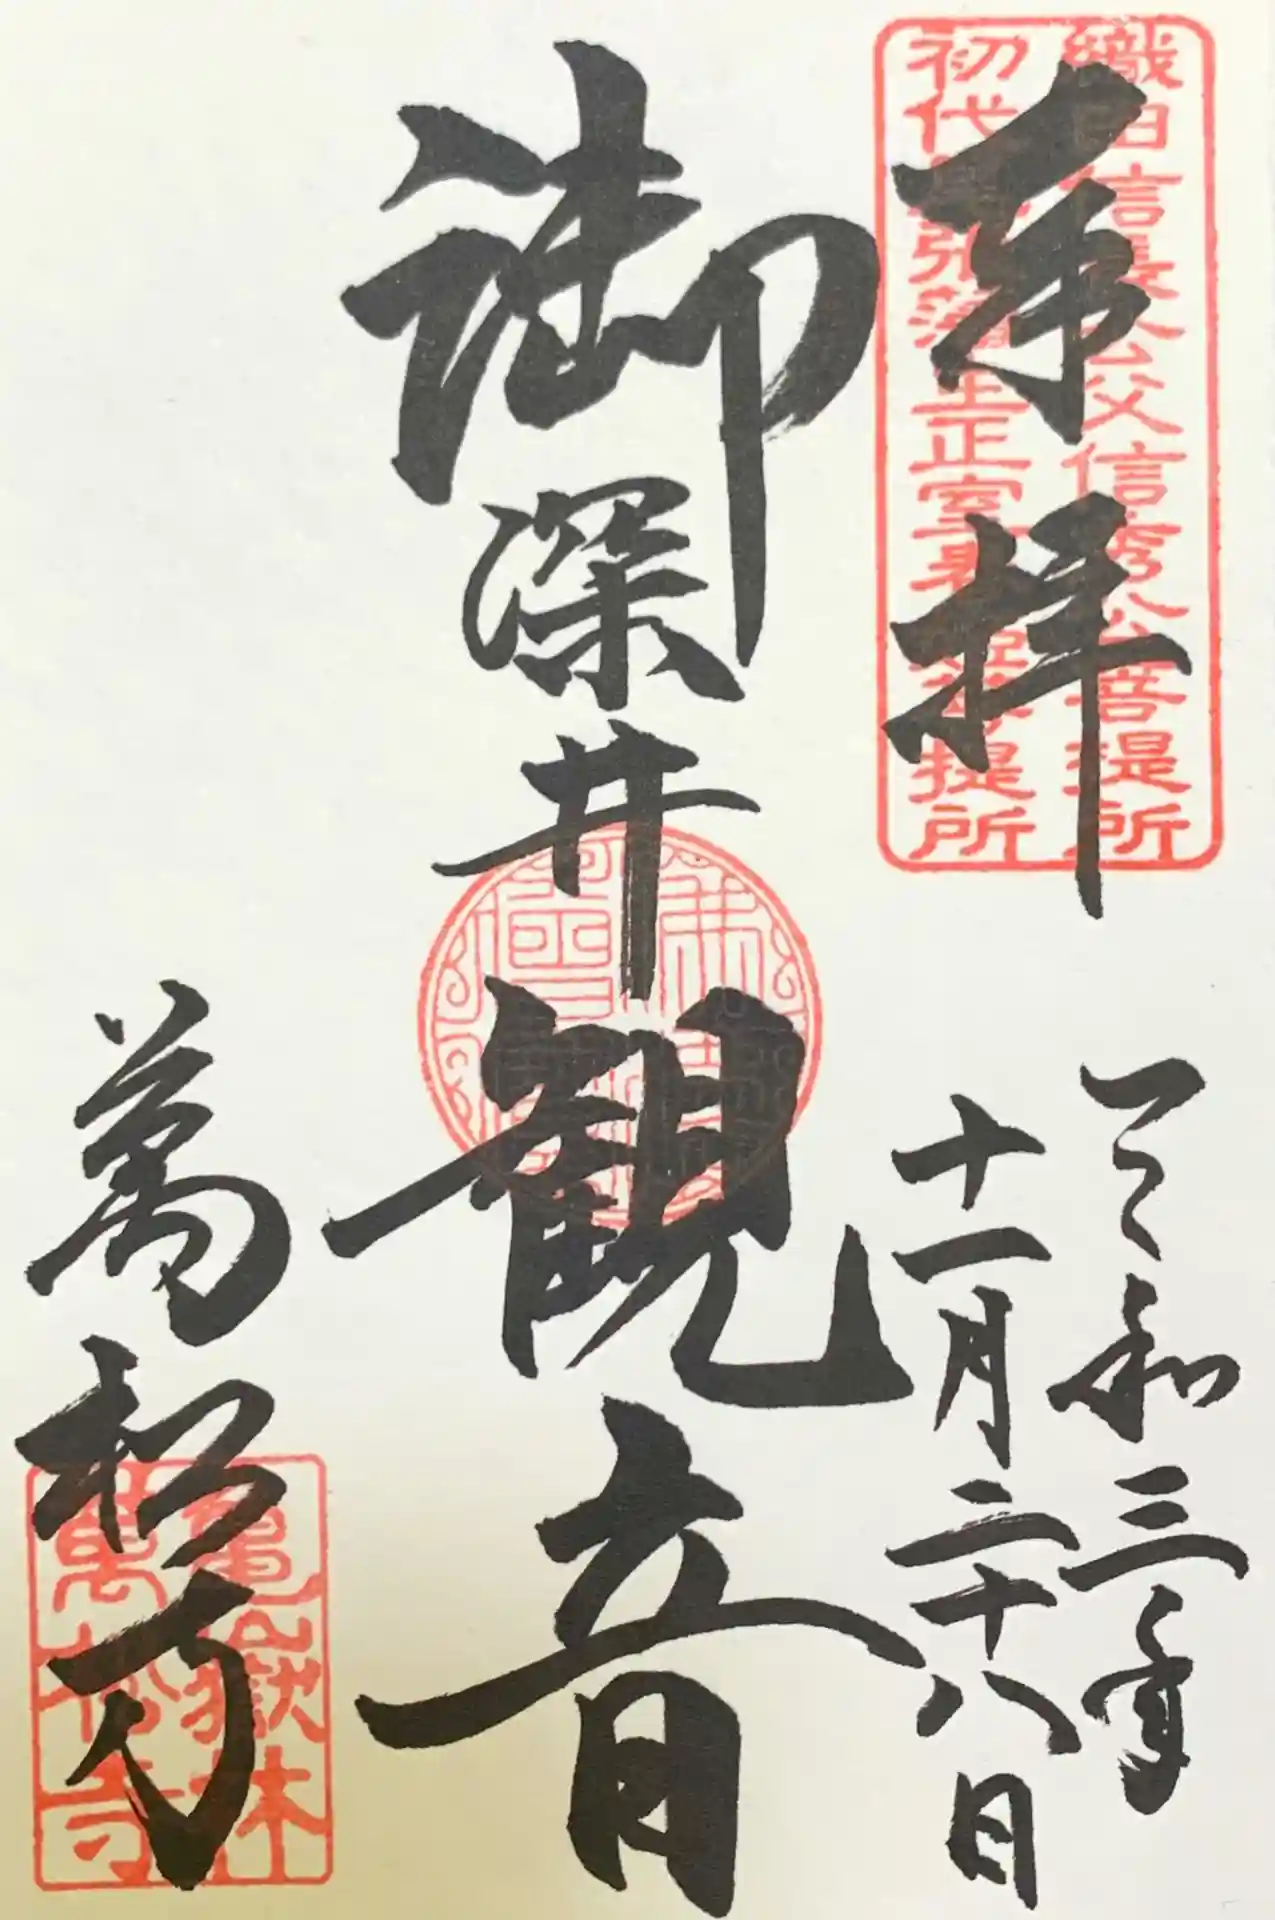 奉拝
織田信長公父信秀公菩提所
初代尾張藩主正室春姫菩提所
令和三年
十一月二十八日
御深井観音
萬松寺
亀嶽林
萬松寺